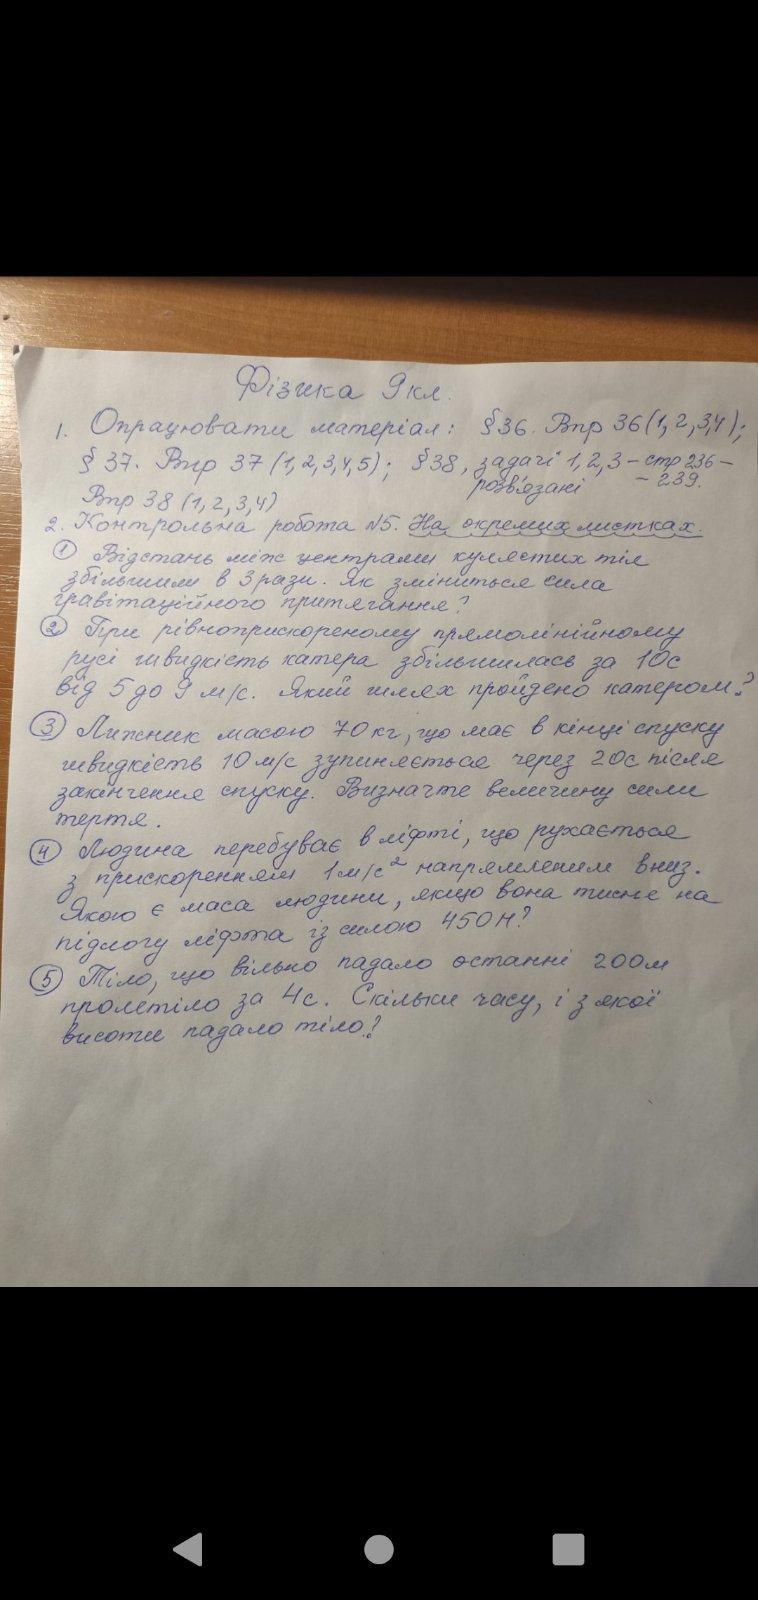 Фізика 9кл.
1. Опрацювати матеріал: §36. Впр 36(1,2,3,4);
§37. Впр 37(1,2,3,4,5); §38, задачі 1,2,3 – стр 236 –
розв'язані – 239.
Впр 38 (1,2,3,4)
2. Контрольна робота №5. На окремих листках.
① Відстань між центрами кулястих тіл
збільшили в 3 рази. Як зміниться сила
гравітаційного притягання?
② При рівноприскореному прямолінійному
русі швидкість катера збільшилась за 10с
від 5 до 9 м/с. Який шлях пройдено катером?
③ Лижник масою 70 кг, що має в кінці спуску
швидкість 10 м/с зупиняється через 20с після
закінчення спуску. Визначте величину сили
тертя.
④ Людина перебуває в ліфті, що рухається
з прискоренням 1 м/с² напрямленим вниз.
Якою є маса людини, якщо вона тисне на
підлогу ліфта із силою 450Н?
⑤ Тіло, що вільно падало останні 200м
пролетіло за 4с. Скільки часу, і з якої
висоти падало тіло?